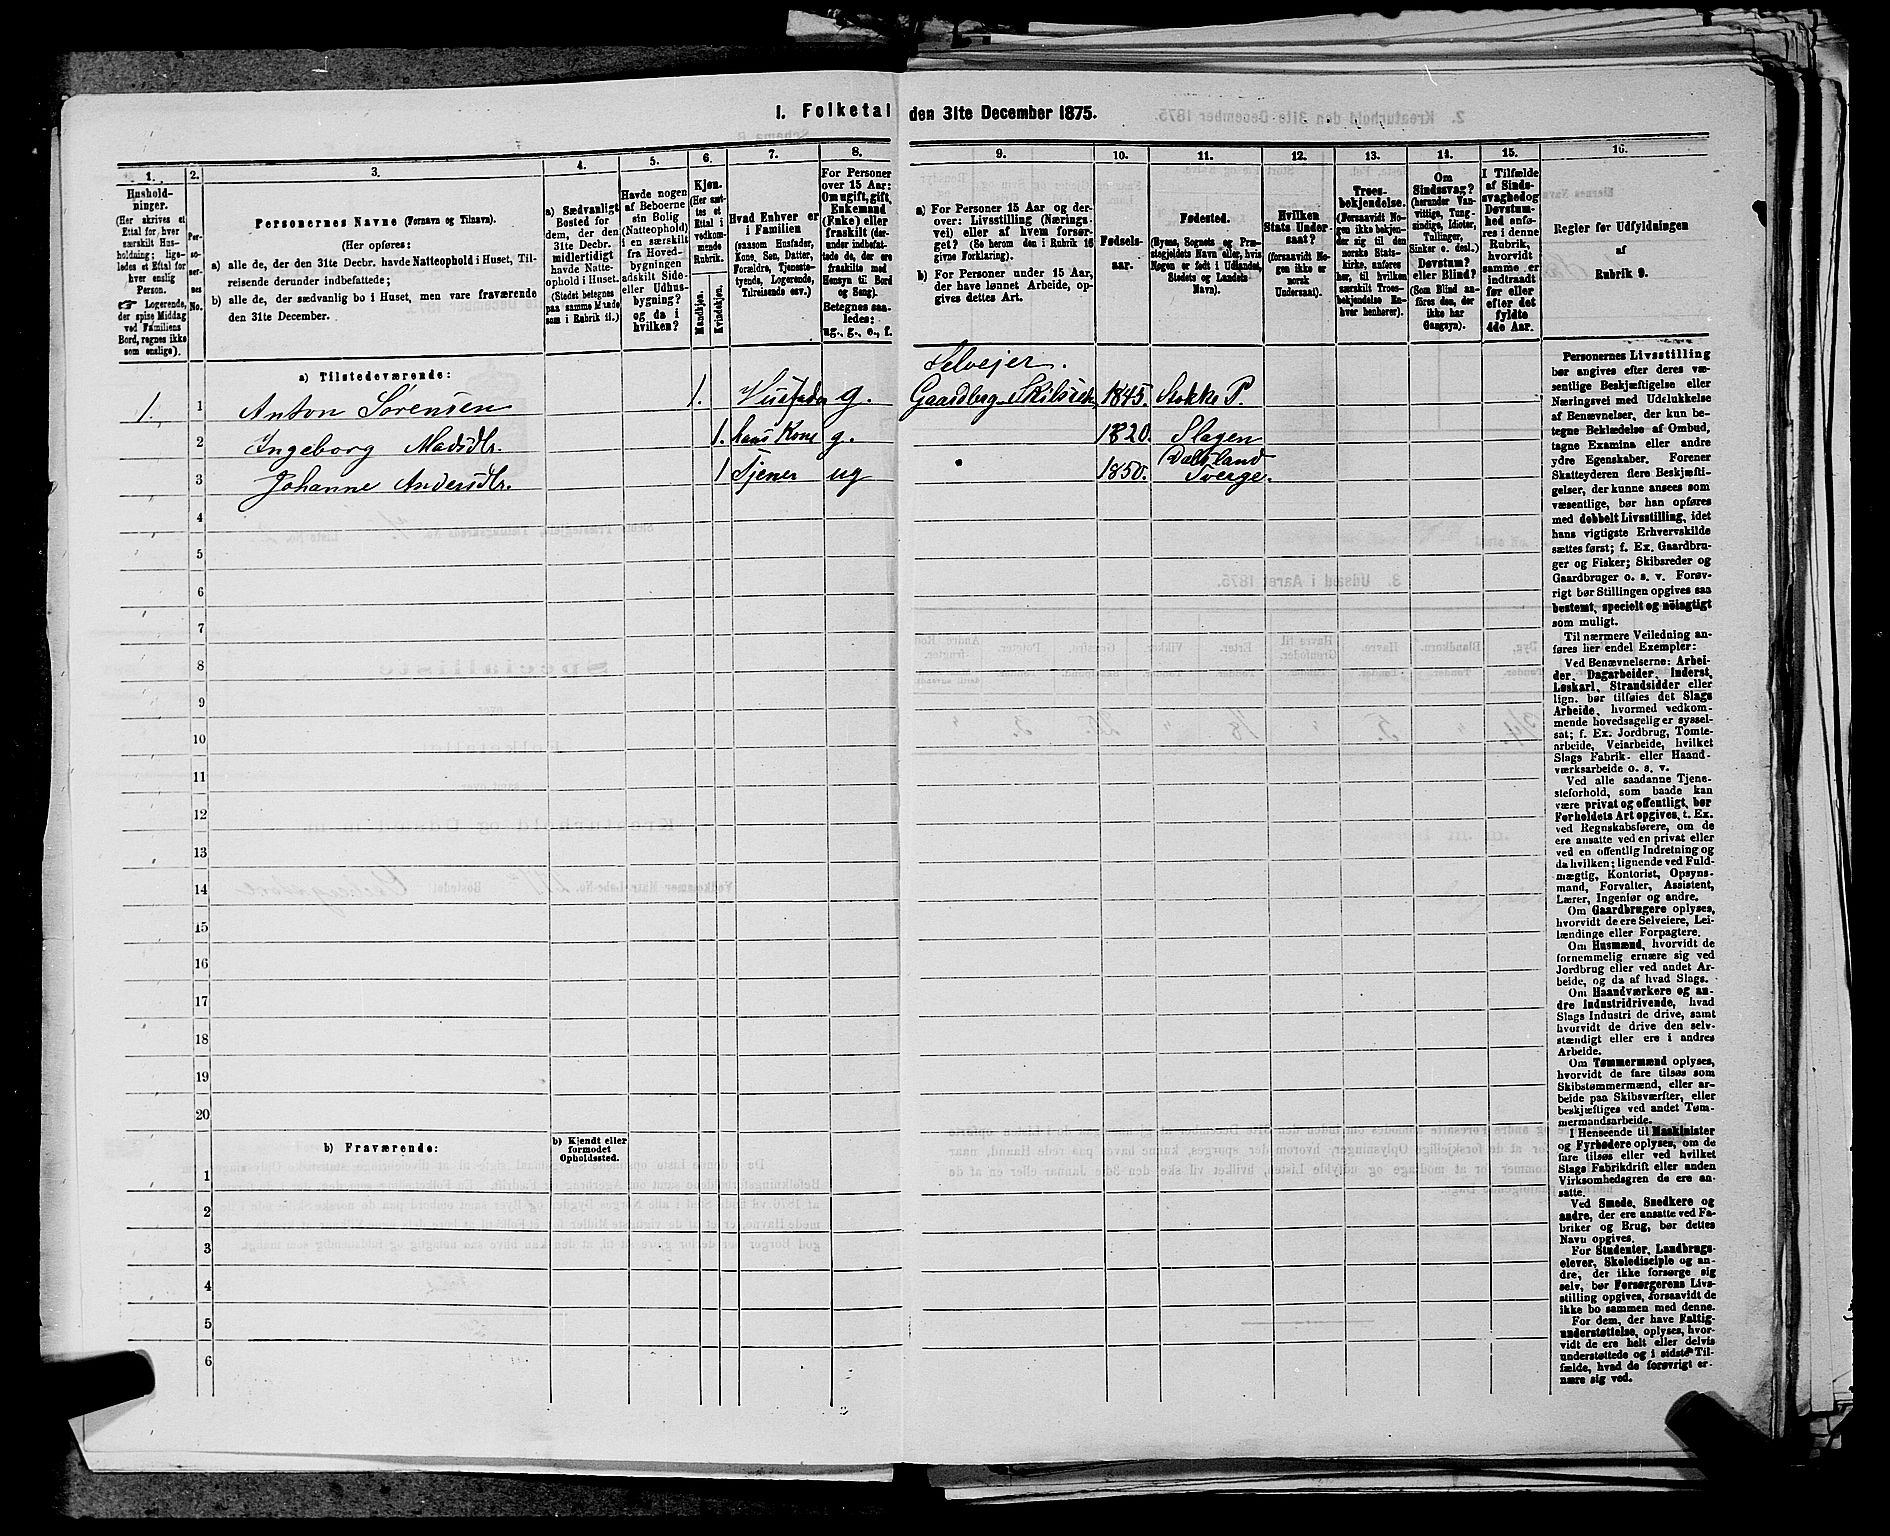 1. Folketal den 31te December 1875.
1. 2. 3. 4. 5. 6. 7. 8. 9. 10. 11. 12. 13. 14. 15. 16.
Hushold-
ninger.
(Her skrives et
Ettal for hver
særskilt Hus-
holdning; lige-
ledes et Ettal for
hver enslig
Person.
☞ Logerende,
der spise Middag
ved Familiens
Bord, regnes ikke
som enslige).
Per-
so-
ner-
nes
No.
Personernes Navne (Fornavn og Tilnavn).
(Her opføres:
a) alle de, der den 31te Decbr. havde Natteophold i Huset, Til-
reisende derunder indbefattede;
b) alle de, der sædvanlig bo i Huset, men vare fraværende
den 31te December.
a) Sædvanligt
Bosted for
dem, der den
31te Decbr.
midlertidigt
havde Natte-
ophold i Huset.
(Stedet betegnes
paa samme Maade
som i Rubrik 11.)
Havde nogen
af Beboerne
sin Bolig
(Natteophold)
i en særskilt
fra Hoved-
bygningen
adskilt Side-
eller Udhus-
bygning?
og da i
hvilken?
Kjøn.
(Her sæt-
tes et
Ettal i
vedkom-
mende
Rubrik.
Mandkjøn.
Kvindekjøn.
Hvad Enhver er
i Familien
(saasom Husfader,
Kone, Søn, Datter,
Forældre, Tjeneste-
tyende, Logerende,
Tilreisende osv.)
For Personer
over 15 Aar:
Om ugift, gift,
Enkemand
(Enke) eller
fraskilt (der-
under indbefat-
tede de, der ere
fraskilte med
Hensyn til Bord
og Seng).
Betegnes saa-
ledes:
ug., g., e., f.
a) For Personer 15 Aar og der-
over: Livsstilling (Nærings-
vei) eller af hvem forsør-
get? (Se herom den i Rubrik 16
givne Forklaring).
b) For Personer under 15 Aar,
der have lønnet Arbeide, op-
gives dettes Art.
Fødsels-
aar.
Fødested.
(Byens, Sognets og Præ-
stegjeldets Navn eller, hvis
Nogen er født i Udlandet,
Stedets og Landets
Navn).
Hvilken
Stats Under-
saat?
(forsaavidt No-
gen ikke er
norsk
Undersaat).
Troes-
bekjendelse.
(Forsaavidt No-
gen ikke bekjen-
der sig til den
norske Stats-
kirke, anføres
her, til hvilken
særskilt Troes-
bekjendelse En-
hver henhører).
Om
Sindssvag?
(herunder Van-
vittige, Tung-
sindige, Idioter,
Tullinger,
Sinker o. desl.)
Døvstum?
eller Blind?
(Som Blind an-
føres den, der
ikke har
Gangsyn).
I Tilfælde
af Sinds-
svaghed og
Døvstum-
hed anfø-
res i denne
Rubrik,
hvorvidt
samme er
indtraadt
før eller
efter det
fyldte
4de Aar.
Regler for Udfyldningen
af
Rubrik 9.
a) Tilstedeværende:
Selvejer.
1. 1 Anton Sørensen 1. Husfader g. Gaardbr. 1845. Stokke P.
2 Ingeborg Madsdtr. 1. hans Kone g. 1820. Slagen
3 Johanne Andersdtr. 1 Tjener ug 1850. Dalsland
Sverge.
4
5
6
7
8
9
10
11
12
13
14
15
16
17
18
19
20
b) Fraværende:
b) Kjendt eller
formodet
Opholdssted.
1
2
3
4
5
6
Personernes Livsstilling
bør angives efter deres væ-
sentlige Beskjæftigelse eller
Næringsvei med Udelukkelse
af Benævnelser, der kun be-
tegne Beklædelse af Ombud,
tagne Examina eller andre
ydre Egenskaber. Forener
Skatteyderen flere Beskjæfti-
gelser, der kunne ansees som
væsentlige, bør han opføres
med dobbelt Livsstilling, idet
hans vigtigste Erhvervskilde
sættes først; f. Ex. Gaardbru-
ger og Fisker; Skibsreder og
Gaardbruger o. s. v. Forøv-
rigt bør Stillingen opgives saa
bestemt, specielt og nöiagtigt
som muligt.
Til nærmere Veiledning an-
føres her endel Exempler:
Ved Benævnelserne: Arbei-
der, Dagarbeider, Inderst,
Løskarl, Strandsidder eller
lign. bør tilføies det Slags
Arbeide, hvormed vedkom-
mende hovedsagelig er syssel-
sat; f. Ex. Jordbrug, Tomte-
arbeide, Veiarbeide, hvilket
Slags Fabrik- eller Haand-
værksarbeide o. s. v.
Ved alle saadanne Tjene-
steforhold, som baade kan
være privat og offentligt, bør
Forholdets Art opgives, t. Ex.
ved Regnskabsførere, om de
ere ansatte ved en privat eller
ved en offentlig Indretning og
da hvilken; lignende ved Fuld-
mægtig, Kontorist, Opsyns-
mand, Forvalter, Assistent,
Lærer, Ingeniør og andre.
Om Gaardbrugere oplyses,
hvorvidt de ere Selveiere, Lei-
lændinge eller Forpagtere.
Om Husmænd, hvorvidt de
fornemmelig ernære sig ved
Jordbrug eller ved andet Ar-
beide, og da af hvad Slags.
Om Haandværkere og an-
dre Industridrivende, hvad
Slags Industri de drive, samt
hvorvidt de drive den selv-
stændigt eller ere i andres
Arbeide.
Om Tømmermænd oplyses,
hvorvidt de fare tilsøs som
Skibstømmermænd, eller ar-
beide paa Skibsværfter, eller
beskjæftiges ved andet Tøm-
mermandsarbeide.
I Henseende til Maskinister
og Fyrbødere oplyses, om de
fare tilsøs eller ved hvilket
Slags Fabrikdrift eller anden
Virksomhedsgren de ere an-
satte.
Ved Smede, Snedkere og
andre, der ere ansatte ved Fa-
briker og Brug, bør dettes
Navn opgives.
For Studenter, Landbrugs-
elever, Skoledisciple og an-
dre, der ikke forsørge sig
selv, bør Forsørgerens Livs-
stilling opgives, forsaavidt de
ikke bo sammen med denne.
For dem, der have Fattig-
understøttelse, oplyses, hvor-
vidt de ere helt eller delvis
understøttede og i sidste Til-
fælde, hvad de forøvrigt er-
nære sig ved.